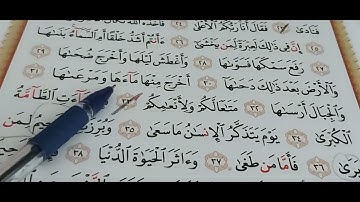 فَنَادَىٰ ٢٣ فَقَالَ أَنَا۠ رَبُّكُمُ ٱلْأَعْلَىٰ ٢٤ فَأَخَذَهُ ٱللَّهُ نَكَالَ
٢٥ إِنَّ فِى ذَٰلِكَ لَعِبْرَةً لِّمَن يَخْشَىٰٓ ٢٦ ءَأَنتُمْ أَشَدُّ خَلْقًا أَمِ ٱلسَّمَآءُ بَنَىٰهَا
رَفَعَ سَمْكَهَا فَسَوَّىٰهَا ٢٨ وَأَغْطَشَ لَيْلَهَا وَأَخْرَجَ ضُحَىٰهَا ٢٩
وَٱلْأَرْضَ بَعْدَ ذَٰلِكَ دَحَىٰهَآ ٣٠ أَخْرَجَ مِنْهَا مَآءَهَا وَمَرْعَىٰهَا ٣١
وَٱلْجِبَالَ أَرْسَىٰهَا مَتَٰعًا لَّكُمْ وَلِأَنْعَٰمِكُمْ ٣٣ جَآءَتِ ٱلطَّآمَّةُ
ٱلْكُبْرَىٰ ٣٤ يَوْمَ يَتَذَكَّرُ ٱلْإِنسَٰنُ مَا سَعَىٰ ٣٥ وَبُرِّزَتِ ٱلْجَحِيمُ لِمَن
٣٦ فَأَمَّا مَن طَغَىٰ ٣٧ وَءَاثَرَ ٱلْحَيَوٰةَ ٱلدُّنْيَا ٣٨